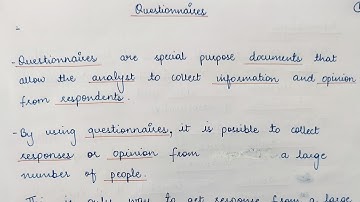 Questionnaires
- Questionnaires are special purpose documents that
allow the analyst to collect information and opinion
from respondents.
- By using questionnaires, it is possible to collect
responses or opinion from a large
number of people.
This is only way to get response from a large